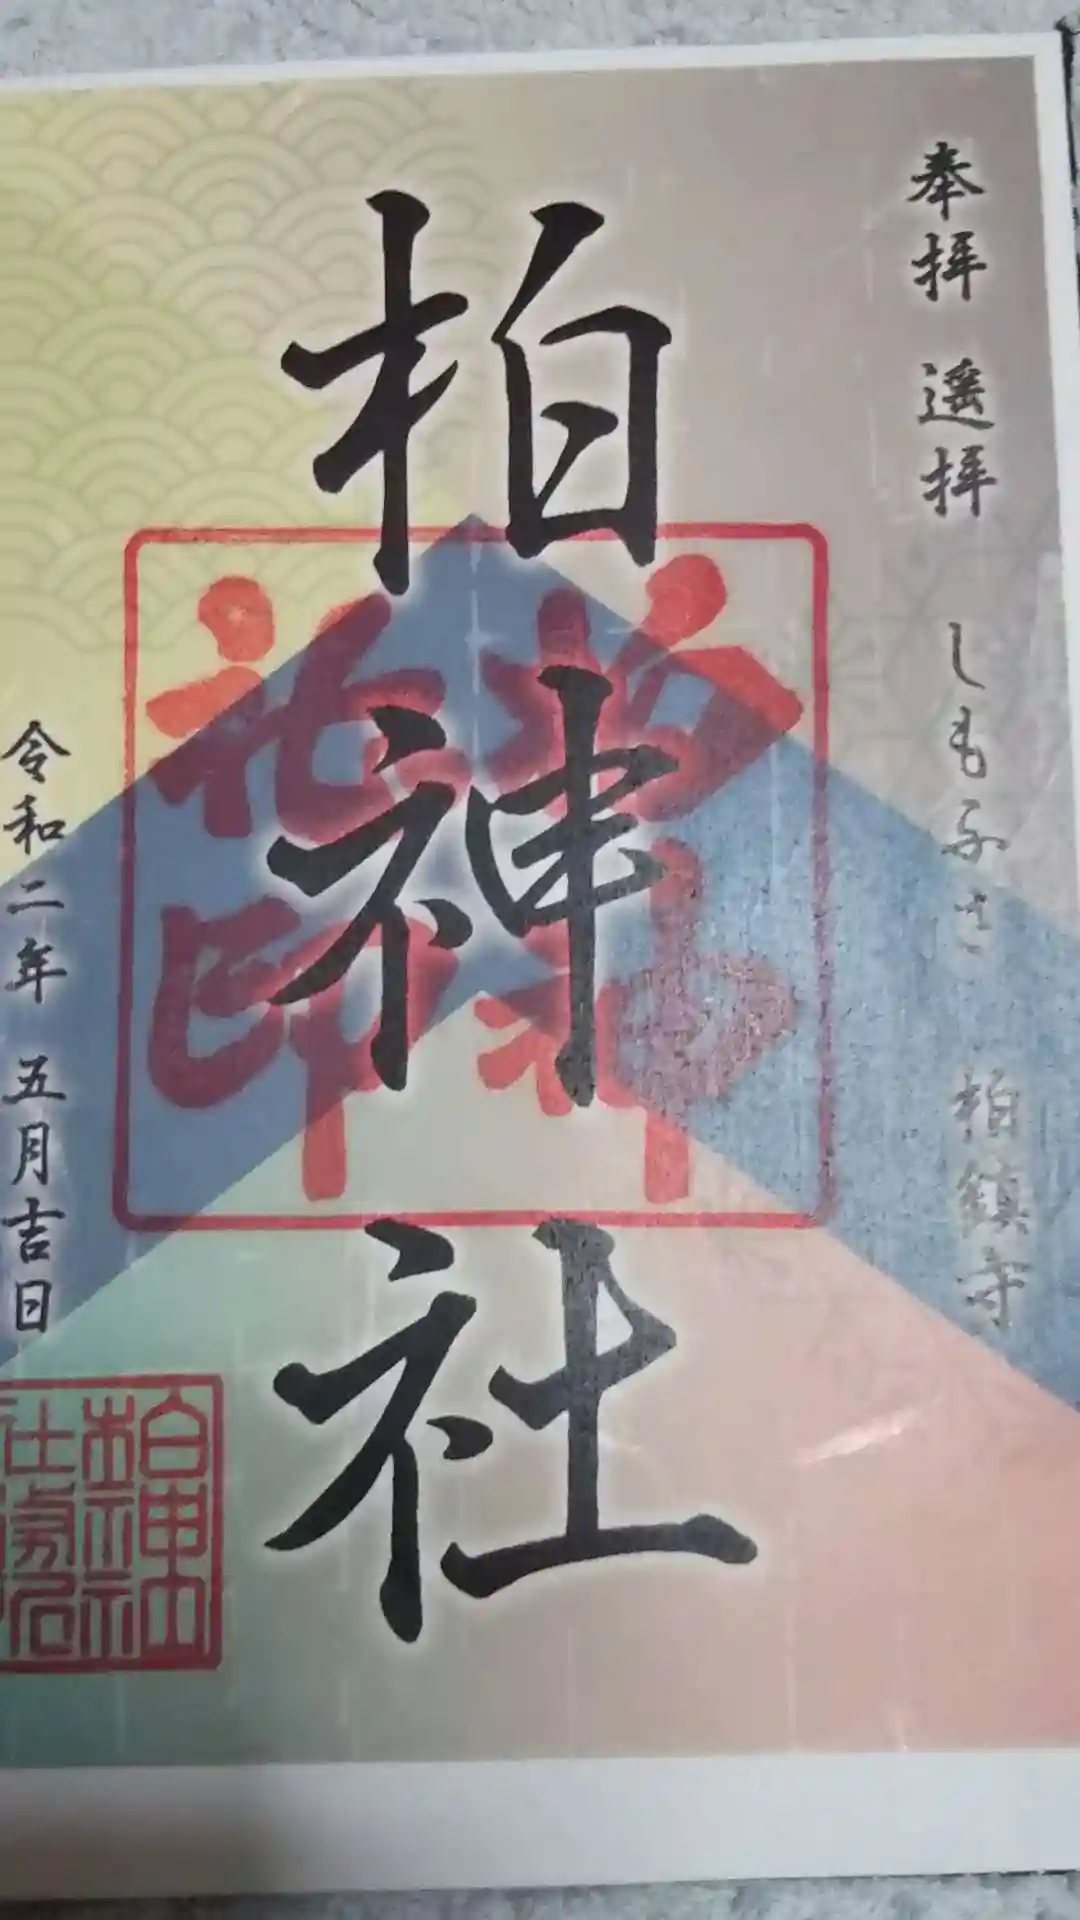 奉拝 遥拝 しもふさ 柏鎮守
柏神社
令和二年 五月吉日
柏神社